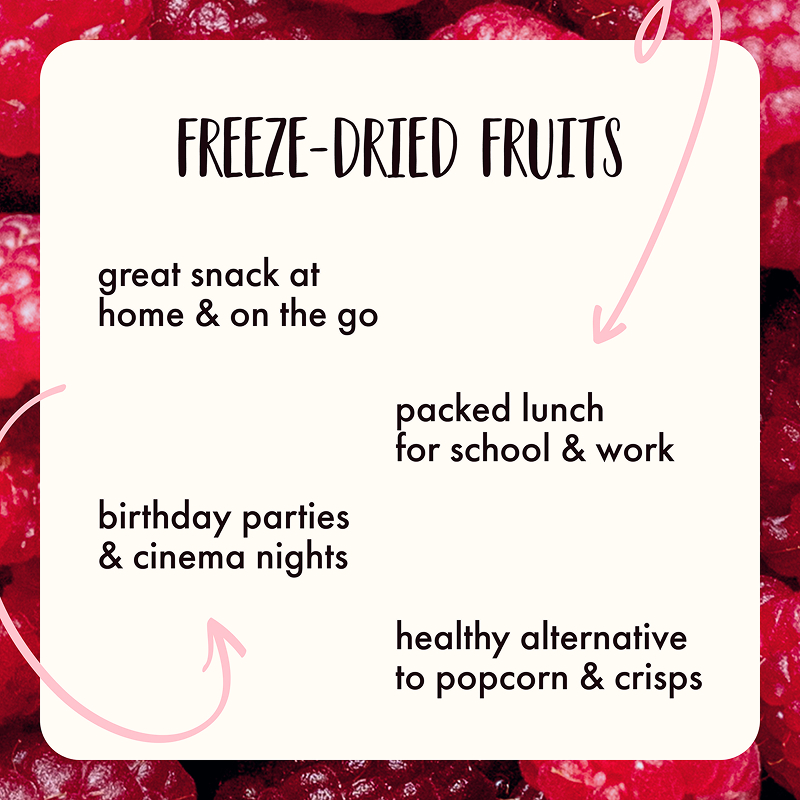 FREEZE-DRIED FRUITS
great snack at
home & on the go
packed lunch
for school & work
birthday parties
& cinema nights
healthy alternative
to popcorn & crisps